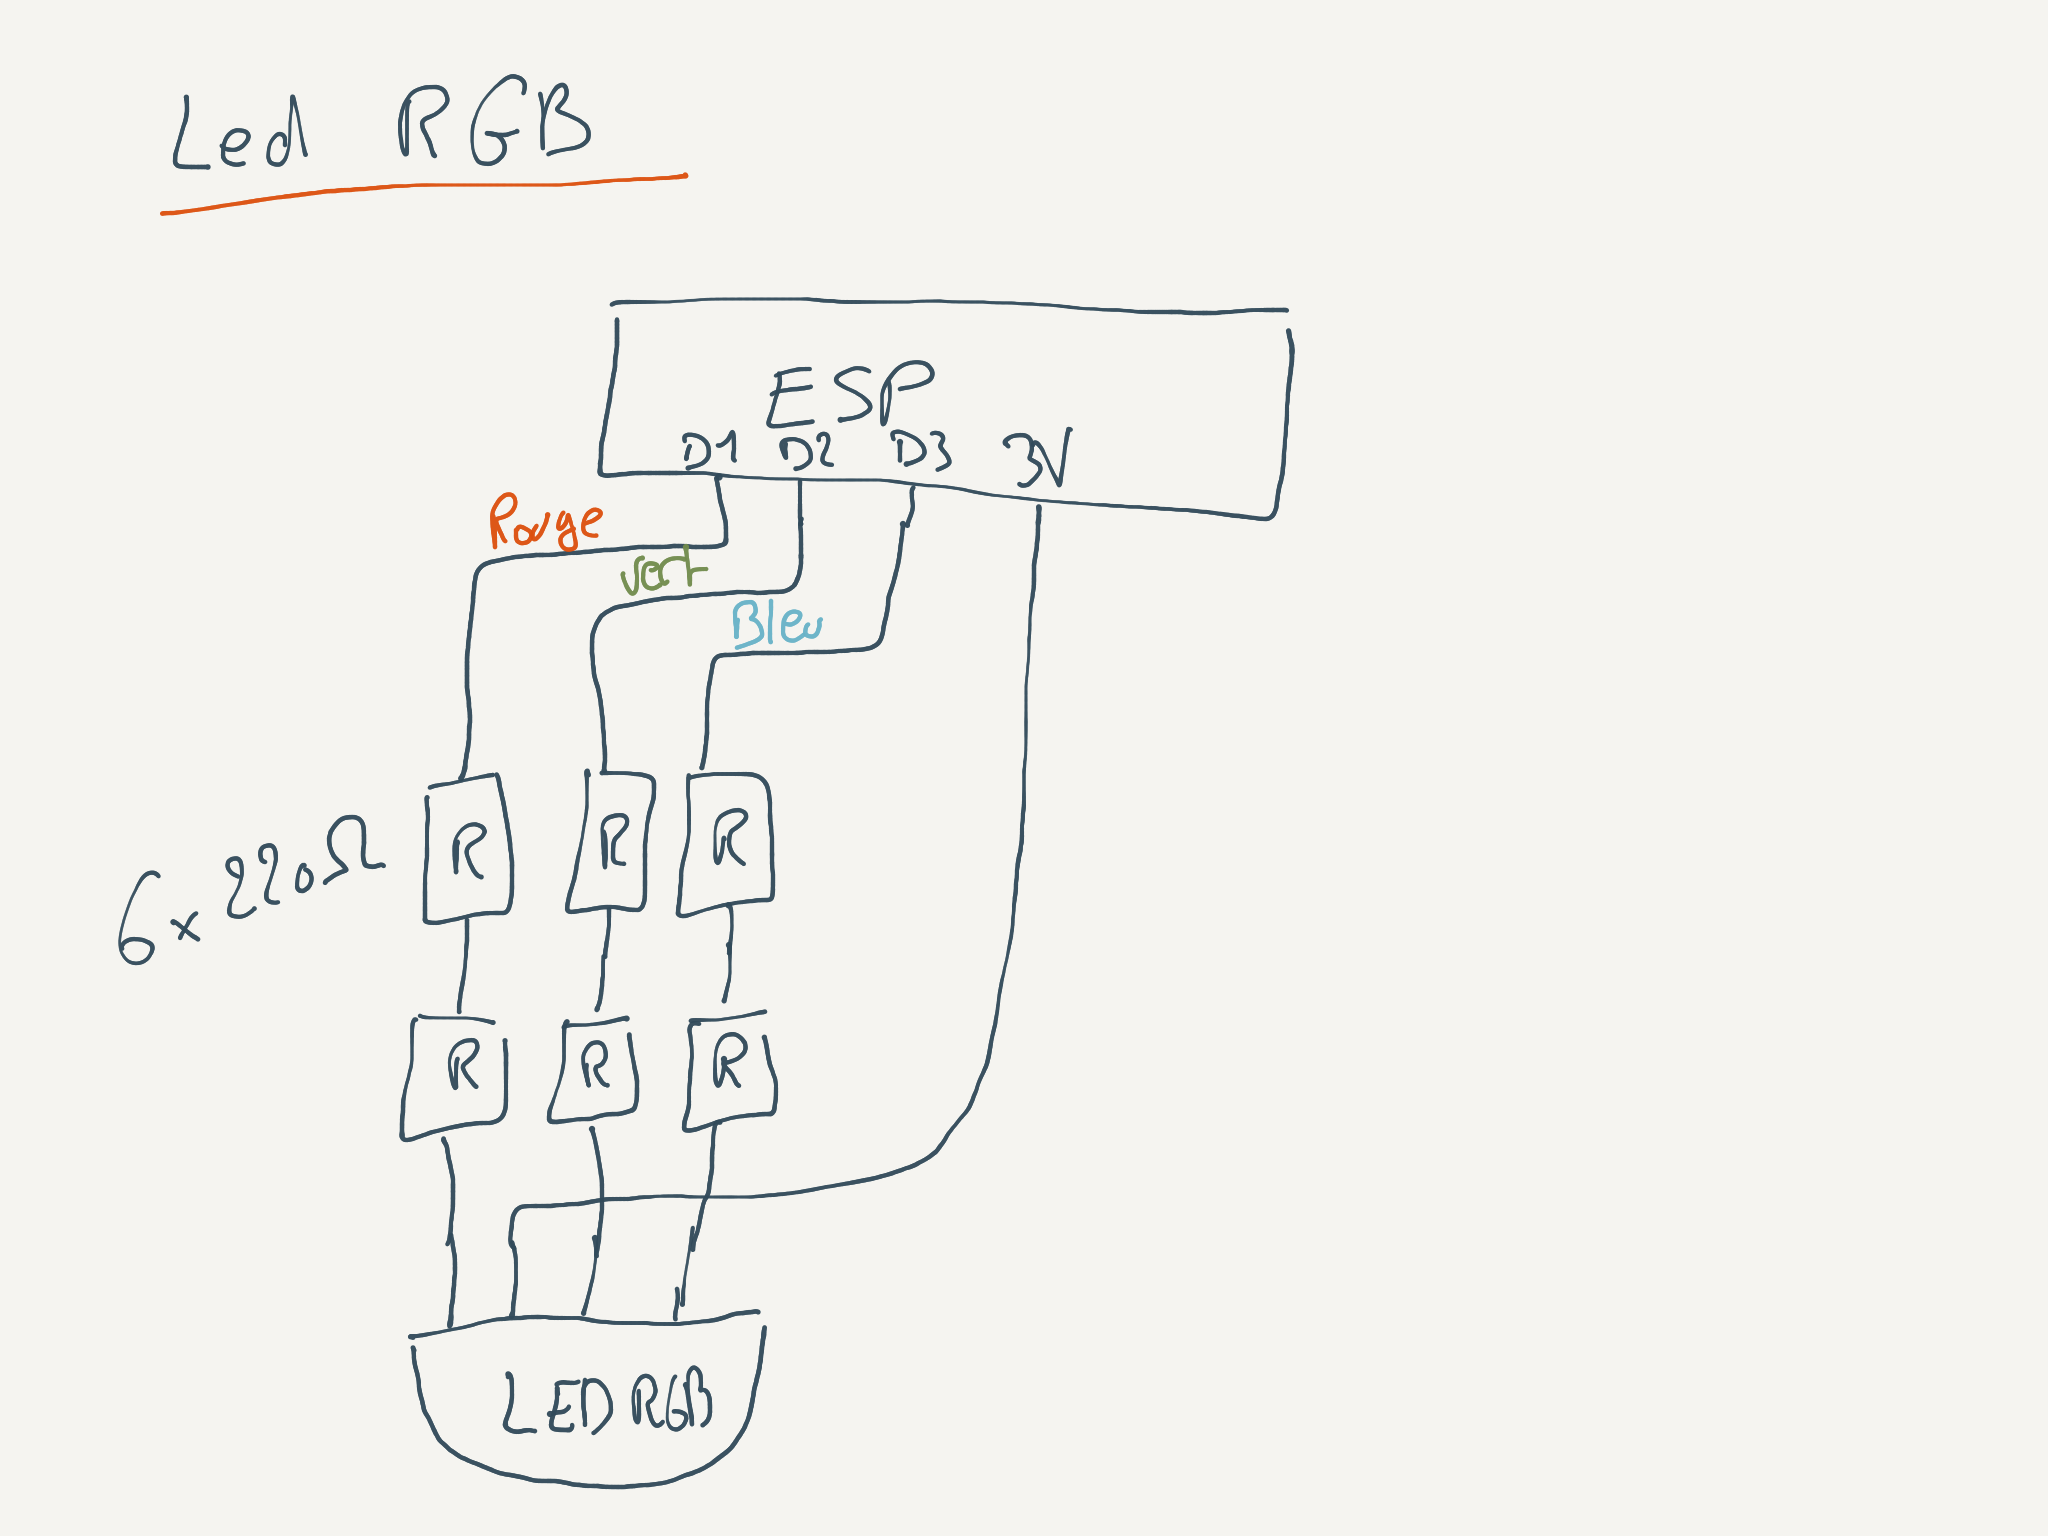 Led RGB
ESP
D1 D2 D3 3V
Rouge
Vert
Bleu
6x220Ω
R R R
R R R
LED RGB